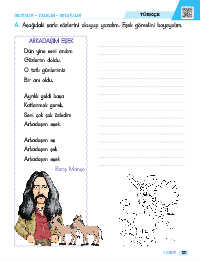 TÜRKÇE
A. Aşağıdaki şarkı sözlerini okuyup yazalım. Eşek görselini boyayalım.
ARKADAŞIM EŞEK
Dün yine seni andım
Gözlerim doldu
O tatlı günlerimiz
Bir anı oldu.
Ayrılık geldi başa
Katlanmak gerek
Seni çok çok özledim
Arkadaşım eşek
Arkadaşım eş
Arkadaşım şek
Arkadaşım eşek
Barış Manço